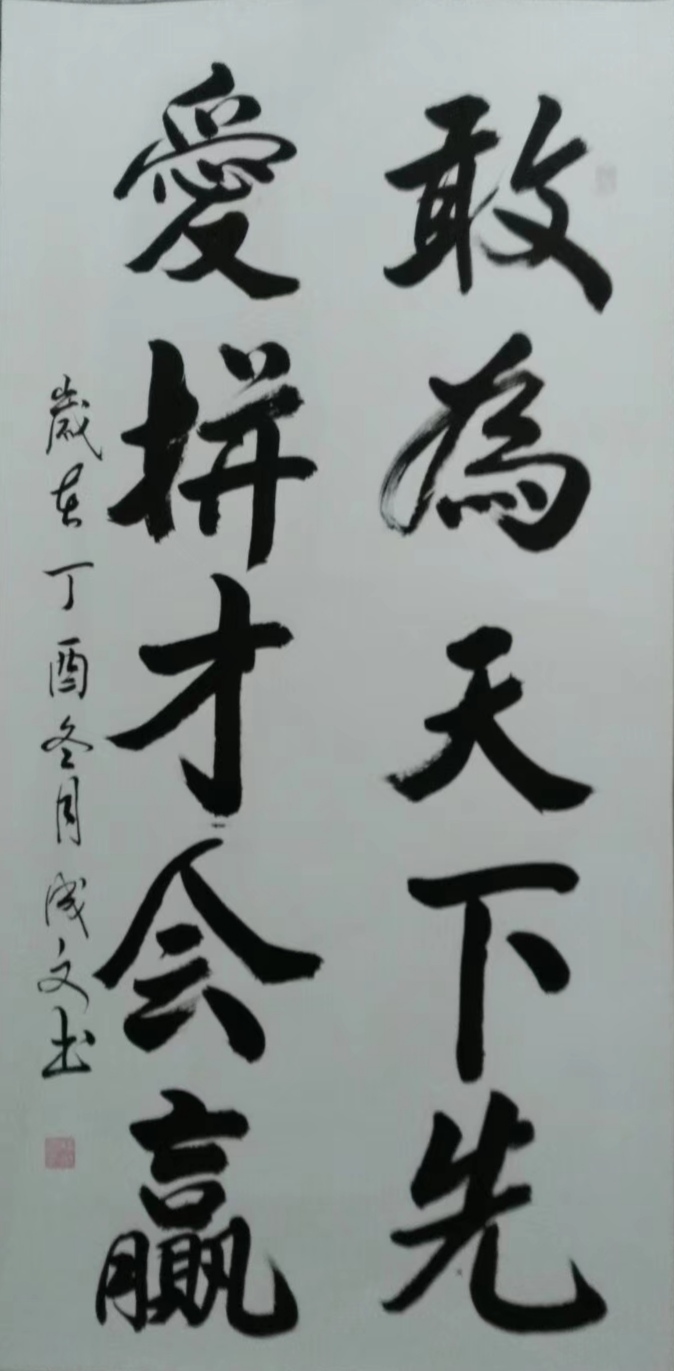 敢為天下先
愛拼才会赢
歲在丁酉冬月成文书